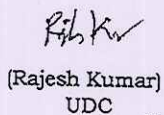 (Rajesh Kumar)
UDC